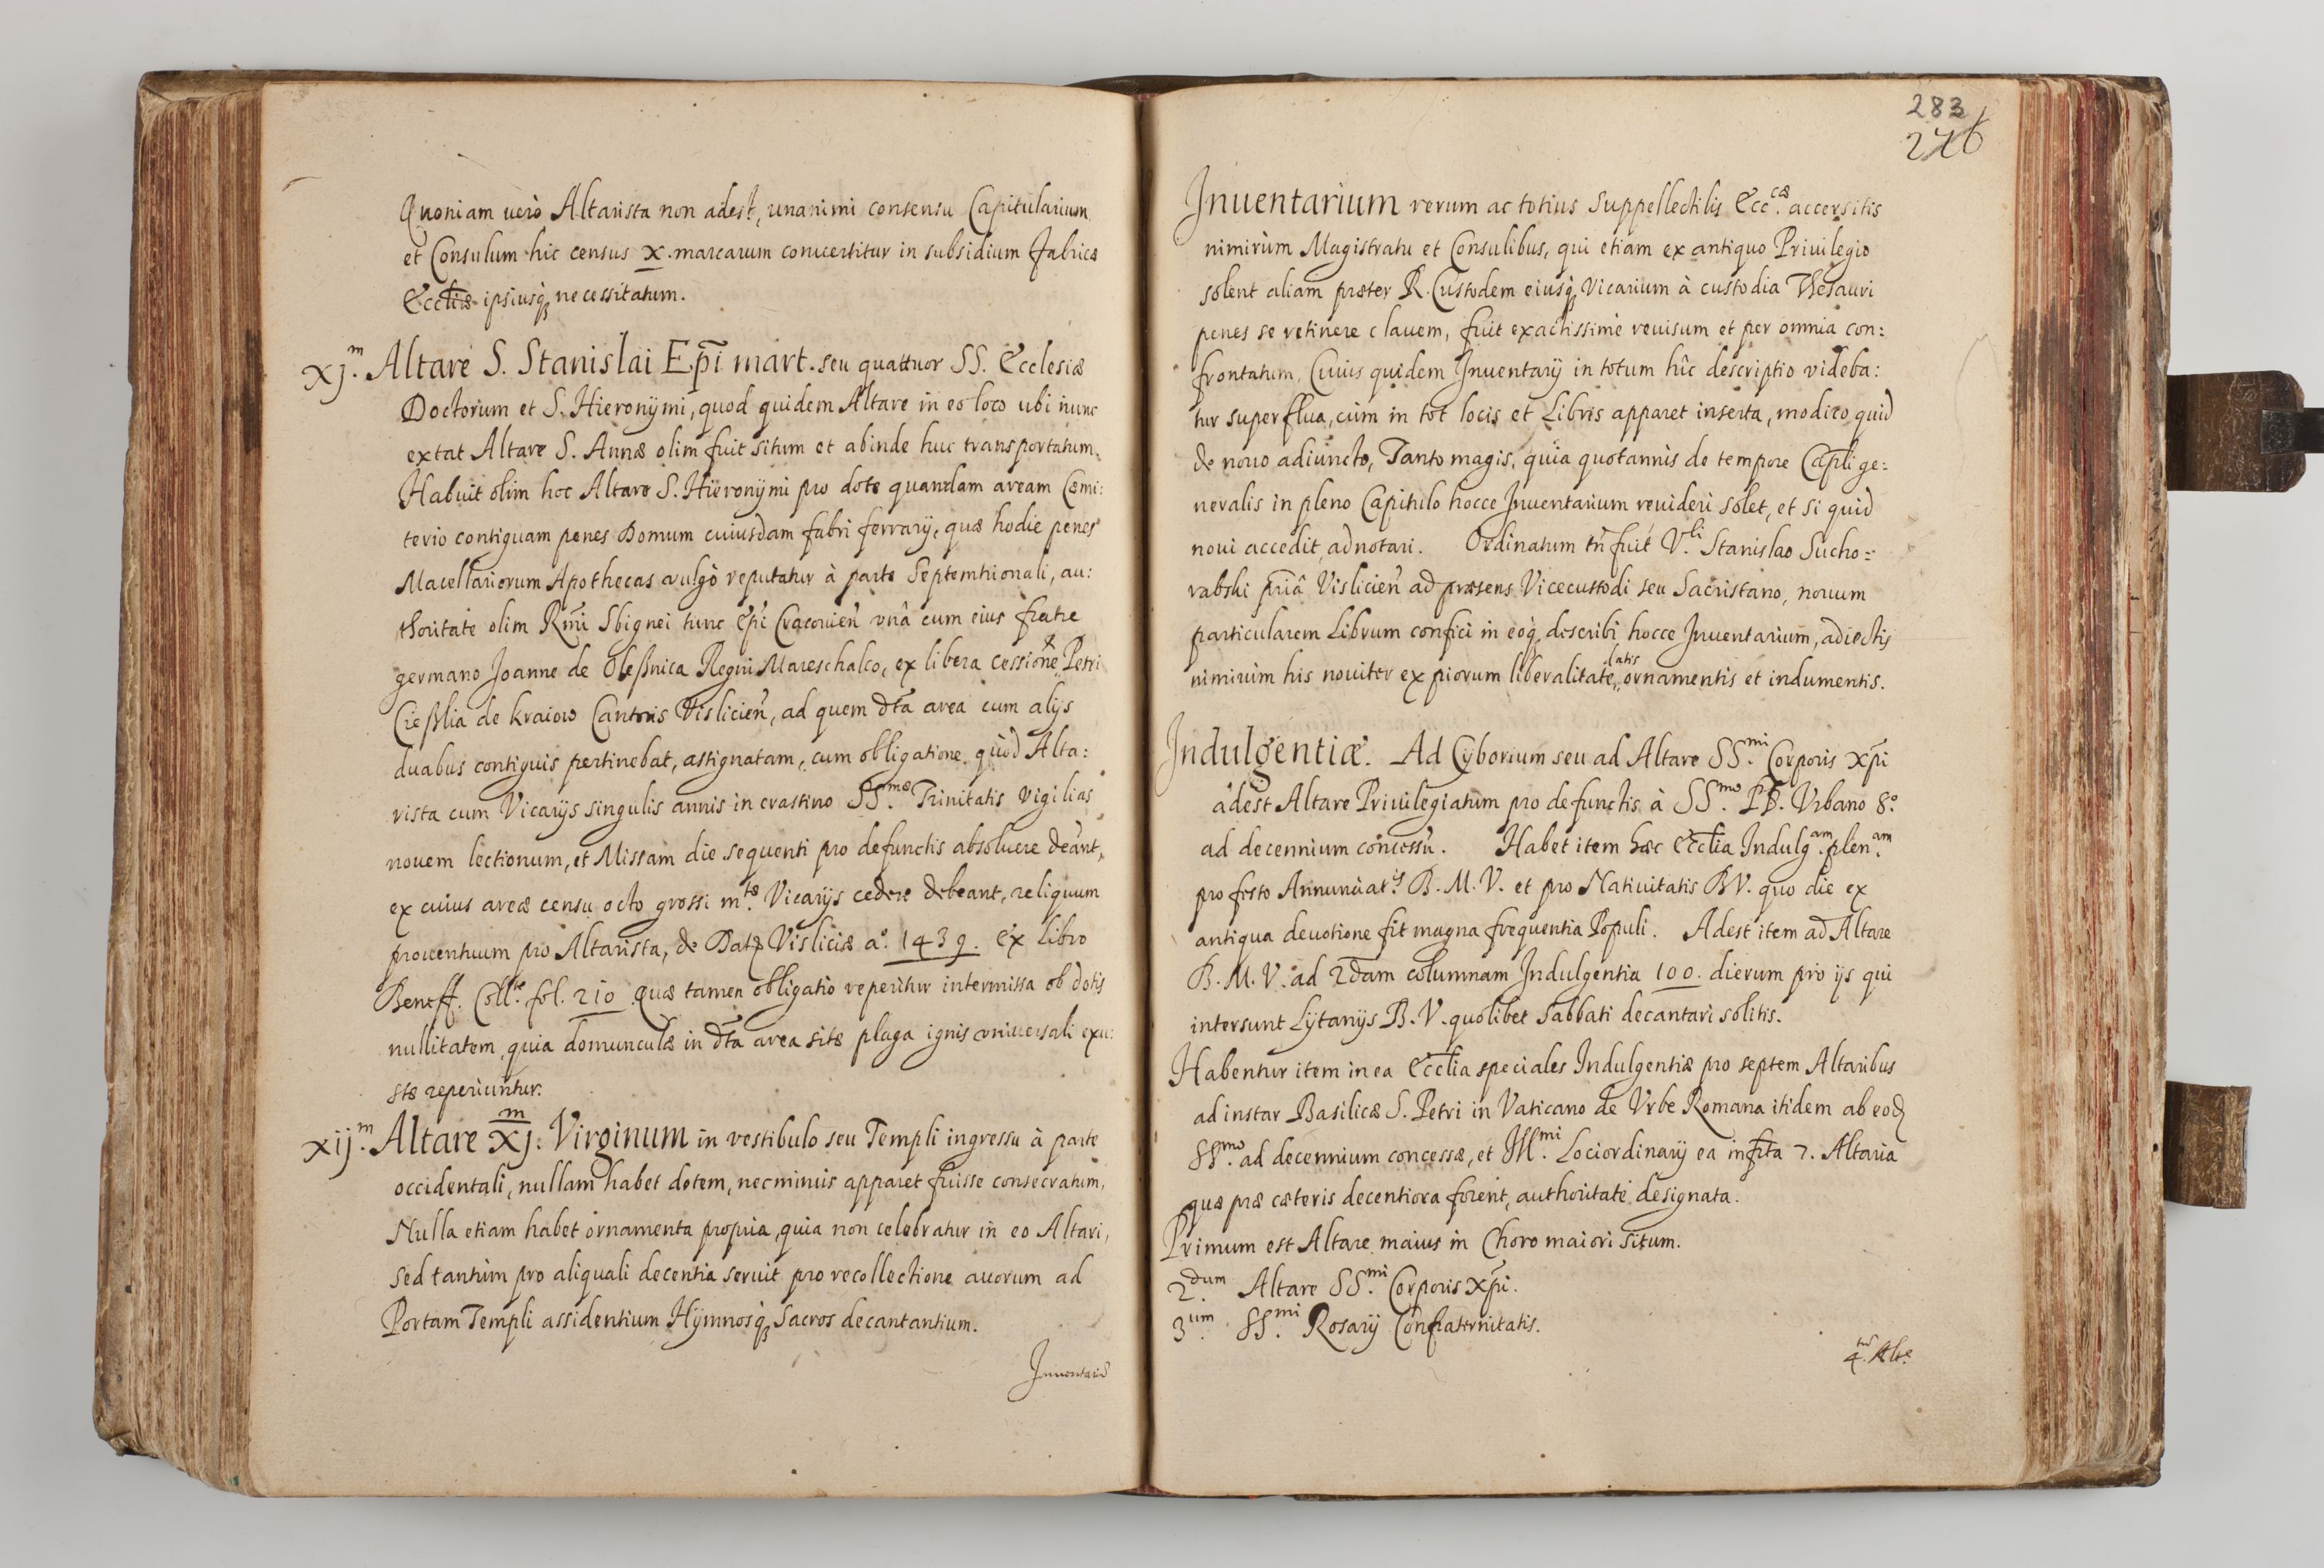 Quoniam uerò Altarista non adest, unanimi consensu Capitularium
et Consulum hic census X. marcarum conuertitur in subsidium fabricæ
Eccliæ ipsiusq necessitatum.
xj.m Altare S. Stanislai Epi mart. seu quattuor SS. Ecclesiæ
Doctorum et S. Hieronymi, quod quidem Altare in eo loco ubi nunc
extat Altare S. Annæ olim fuit situm et abinde huc transportatum.
Habuit olim hoc Altare S. Hieronymi pro dote quandam aream Cæmi:
terio contiguam penes Domum cuiusdam fabri ferrarij, quæ hodie penes
Macellariorum Apothecas vulgò reputatur à parte Septemtrionali, au:
thoritate olim Rmi Sbignei tunc Epi Cracouien vnà cum eius fratre
germano Joanne de Oleßnica Regni Mareschalco, ex libera cessione Petri
Cießlia de kraiow Cantoris Vislicien, ad quem dta area cum alijs
duabus contiguis pertinebat, assignatam, cum obligatione quòd Alta:
rista cum Vicarijs singulis annis in crastino SS.mæ Trinitatis vigilias
nouem lectionum, et Missam die sequenti pro defunctis absoluere deant,
ex cuius areæ censu octo grossi m.tæ Vicarijs cedere debeant, reliquum
prouentuum pro Altarista, de Datæ Visliciæ a.o 1439. Ex libro
Beneff. Coll.tæ fol. 210 Quæ tamen obligatio reperitur intermissa ob dotis
nullitatem, quia domunculæ in dta area sitæ plaga ignis vniuersali exu:
stæ reperiuntur.
xij.m Altare XJ.m Virginum in vestibulo seu Templi ingressu à parte
occidentali, nullam habet dotem, necminus apparet fuisse consecratum,
Nulla etiam habet ornamenta propria, quia non celebratur in eo Altari,
sed tantùm pro aliquali decentia seruit pro recollectione auorum ad
Portam Templi assidentium Hymnosq Sacros decantantium.
Inuentariū
283
276
Inuentarium rerum ac totius Suppellectilis Ecc.cæ accersitis
nimirùm Magistratu et Consulibus, qui etiam ex antiquo Priuilegio
solent aliam præter R. Custodem eiusq Vicarium à custodia Thesauri
penes se retinere clauem, fuit exactissimè reuisum et per omnia con:
frontatum, Cuius quidem Inuentarij in totum hîc descriptio videba:
tur superflua, cùm in tot locis et Libris apparet inserta, modico quid
de nouo adiuncto, Tanto magis, quia quotannis de tempore Capli ge:
neralis in pleno Capitulo hocce Inuentarium reuideri solet, et si quid
noui accedit, adnotari. Ordinatum tn fuit V.li Stanislao Sucho:
rabski priâ Vislicien ad præsens Vicecustodi seu Sacristano, nouum
particularem Librum confici in eoq describi hocce Inuentarium, adiectis
nimirùm his nouiter ex piorum liberalitate datis ornamentis et indumentis.
Indulgentiæ. Ad Cyborium seu ad Altare SS.mi Corporis Xpi
adest Altare Priuilegiatum pro defunctis à SS.mo PD. Vrbano 8.o
ad decennium concessū. Habet item hæc Ecclia Indulg.am plen.am
pro festo Annunciat.is B. M. V. et pro Natiuitatis BV. quo die ex
antiqua deuotione fit magna frequentia Populi. Adest item ad Altare
B. M. V. ad 2dam columnam Indulgentia 100. dierum pro ijs qui
intersunt Lytanijs B. V. quolibet Sabbati decantari solitis.
Habentur item in ea Ecclia speciales Indulgentiæ pro septem Altaribus
ad instar Basilicæ S. Petri in Vaticano de Vrbe Romana itidem ab eod
SS.mo ad decennium concessæ, et Ill.mi Lociordinarij ea infsta 7. Altaria
quæ præ cæteris decentiora forent, authoritate designata.
Primum est Altare maius in Choro maiori situm.
2.dum Altare SS.mi Corporis Xpi.
3.um SS.mi Rosarij Confraternitatis.
4.tū Alt.e